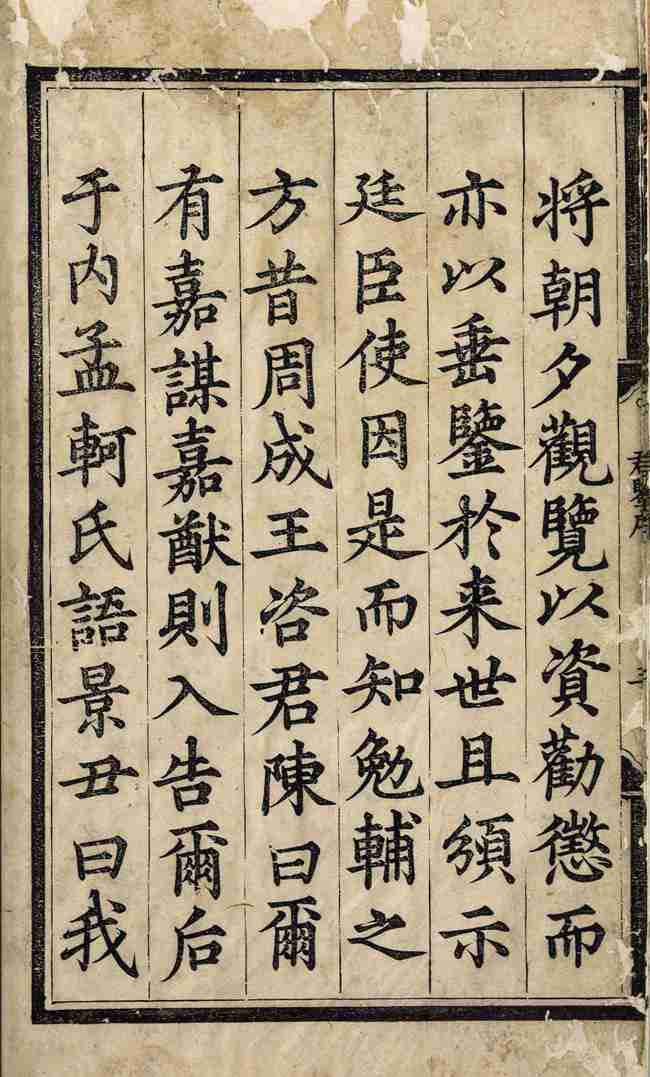 将朝夕觀覽以資勸懲而
亦以垂鑒於来世且頒示
廷臣使因是而知勉輔之
方昔周成王咨君陳曰爾
有嘉謀嘉猷則入告爾后
于内孟軻氏語景丑曰我
君鑒序
三